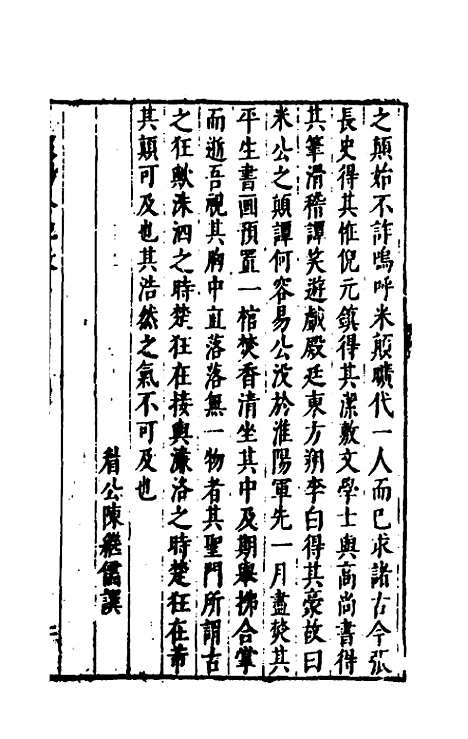 之顛始不詐嗚呼米顛曠代一人而已求諸古今張
長史得其怪倪元鎮得其潔敷文學士與高尚書得
其筆滑稽譚笑遊戲殿廷東方朔李白得其豪故曰
米公之顛譚何容易公没於淮陽軍先一月盡焚其
平生書画預置一棺焚香清坐其中及期舉拂合掌
而逝吾視其胸中直落落無一物者其聖門所謂古
之狂歟洙泗之時楚狂在接輿濂洛之時楚狂在芾
其顛可及也其浩然之氣不可及也
眉公陳繼儒譔